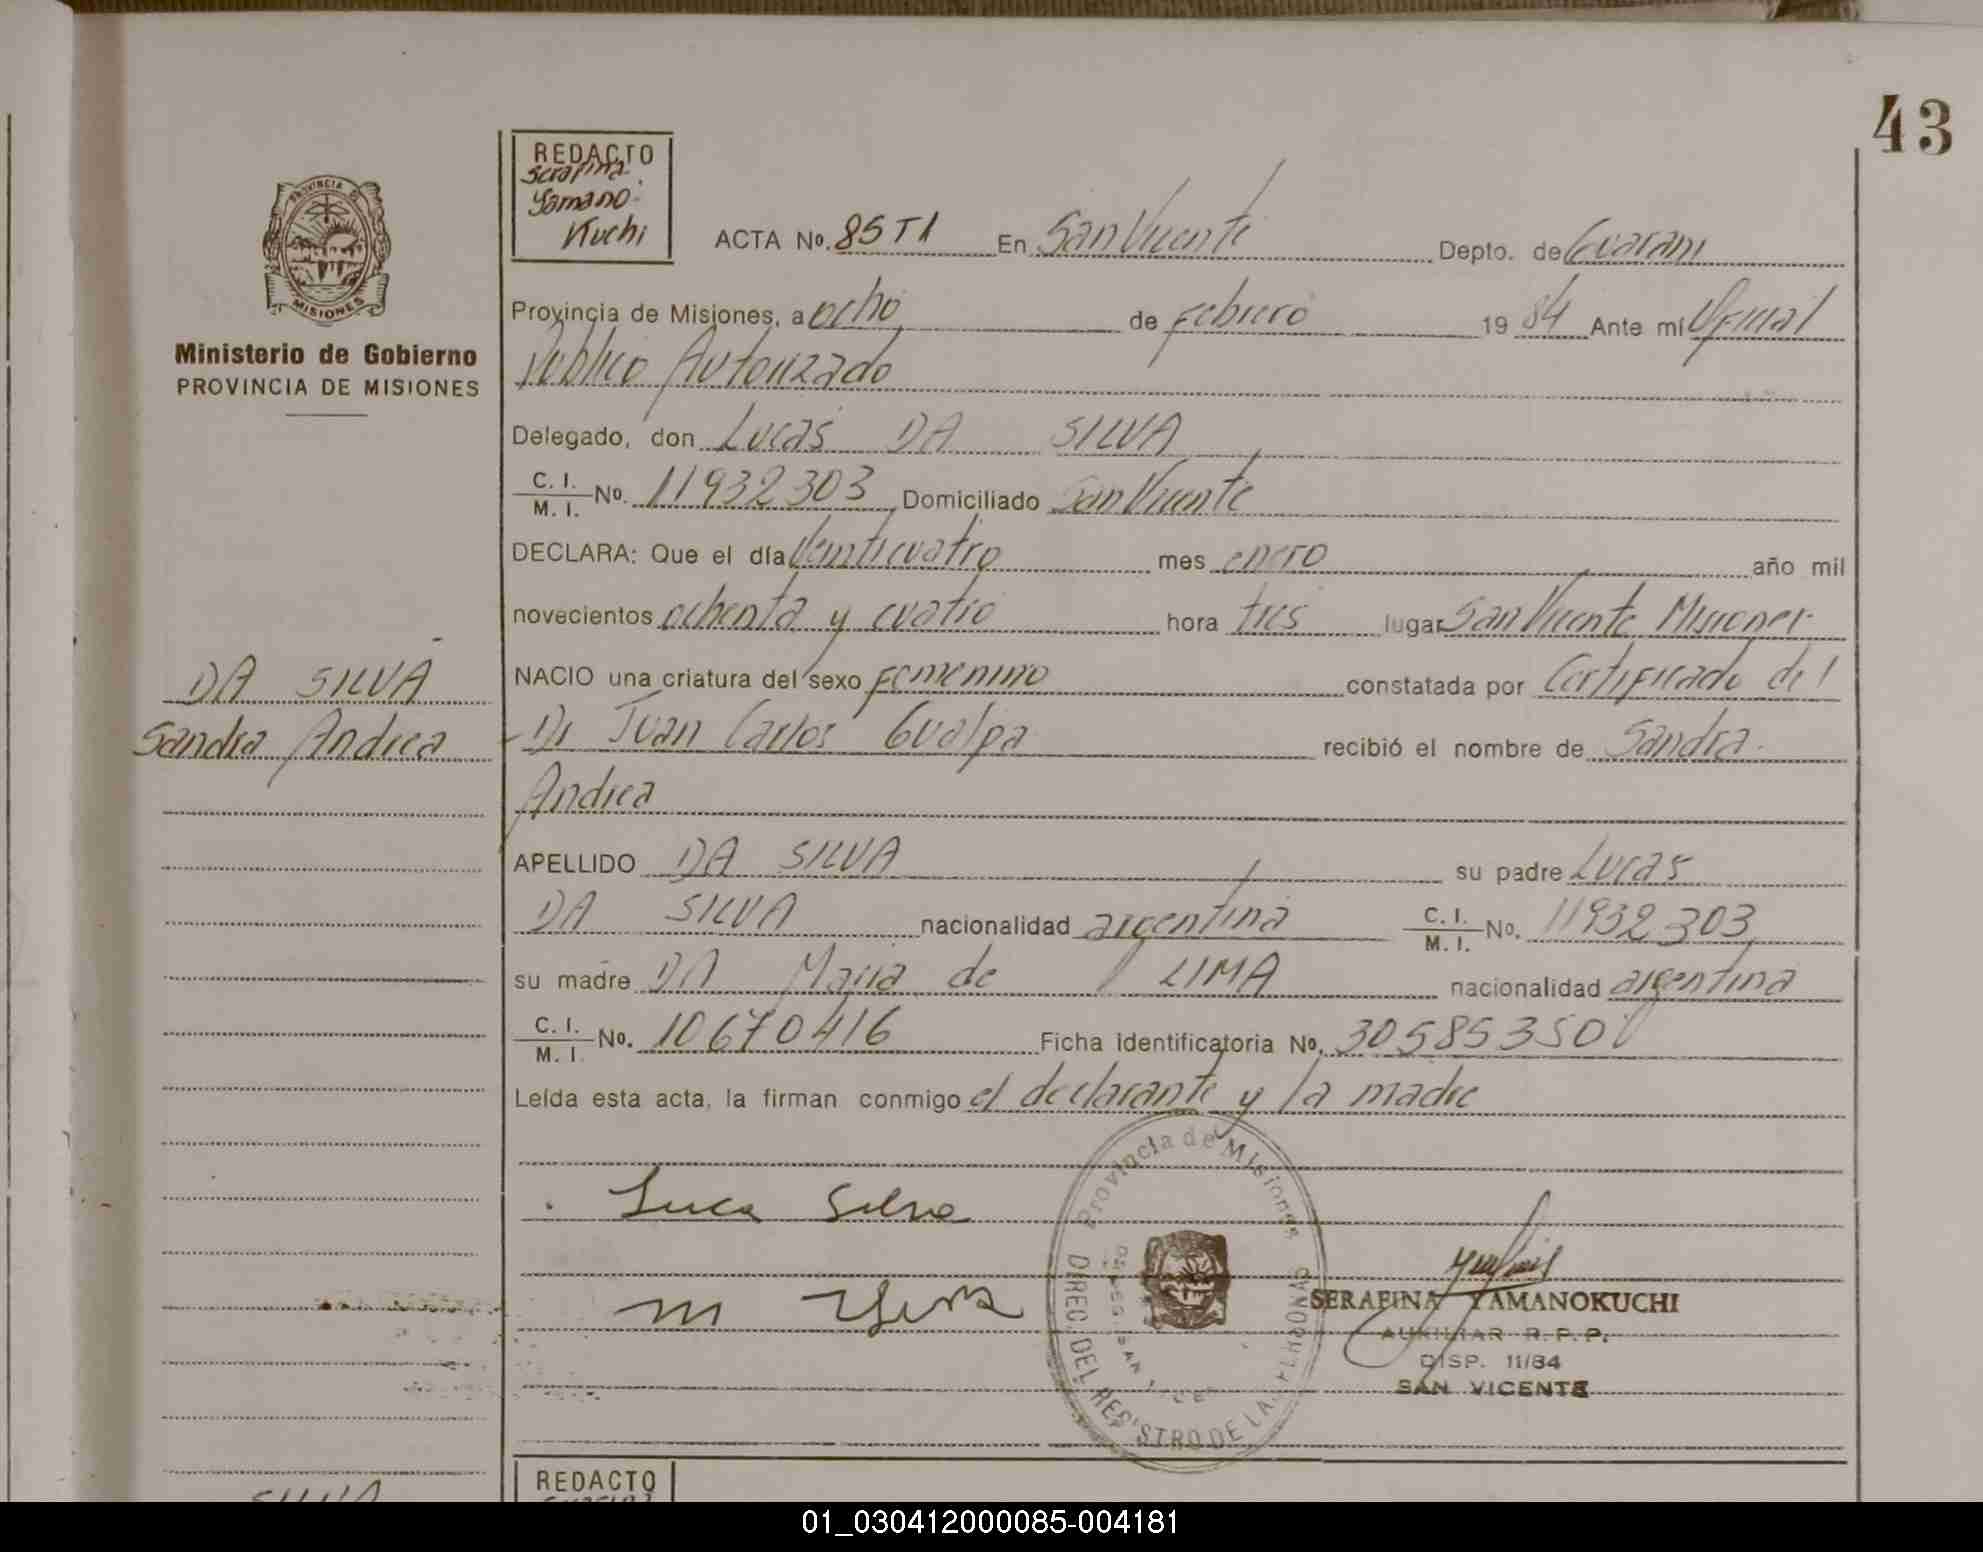 43
REDACTO
Serafina
Yamano-
Kuchi
PROVINCIA DE
MISIONES
Ministerio de Gobierno
PROVINCIA DE MISIONES
ACTA No. 85 T1 En San Vicente Depto. de Guarani
Provincia de Misiones, a ocho de Febrero 1984 Ante mi Oficial
Publico Autorizado
Delegado, don Lucas DA SILVA
C. I. / M. I. No. 11932303 Domiciliado San Vicente
DECLARA: Que el día Veinticuatro mes enero año mil
novecientos ochenta y cuatro hora tres lugar San Vicente Misiones
NACIO una criatura del sexo Femenino constatada por Certificado del
Dr Juan Carlos Gualpa recibió el nombre de Sandra
Andrea
APELLIDO DA SILVA su padre Lucas
DA SILVA nacionalidad argentina C. I. / M. I. No. 11932303
su madre DA Maria de LIMA nacionalidad argentina
C. I. / M. I. No. 10670416 Ficha Identificatoria No. 30585350
Leída esta acta, la firman conmigo el declarante y la madre
DA SILVA
Sandra Andrea
Luca Silva
Provincia de Misiones
DIREC. DEL REGISTRO DE LAS PERSONAS
SERAFINA YAMANOKUCHI
AUXILIAR R. P. P.
DISP. 11/84
SAN VICENTE
REDACTO
SILVA
01_030412000085-004181